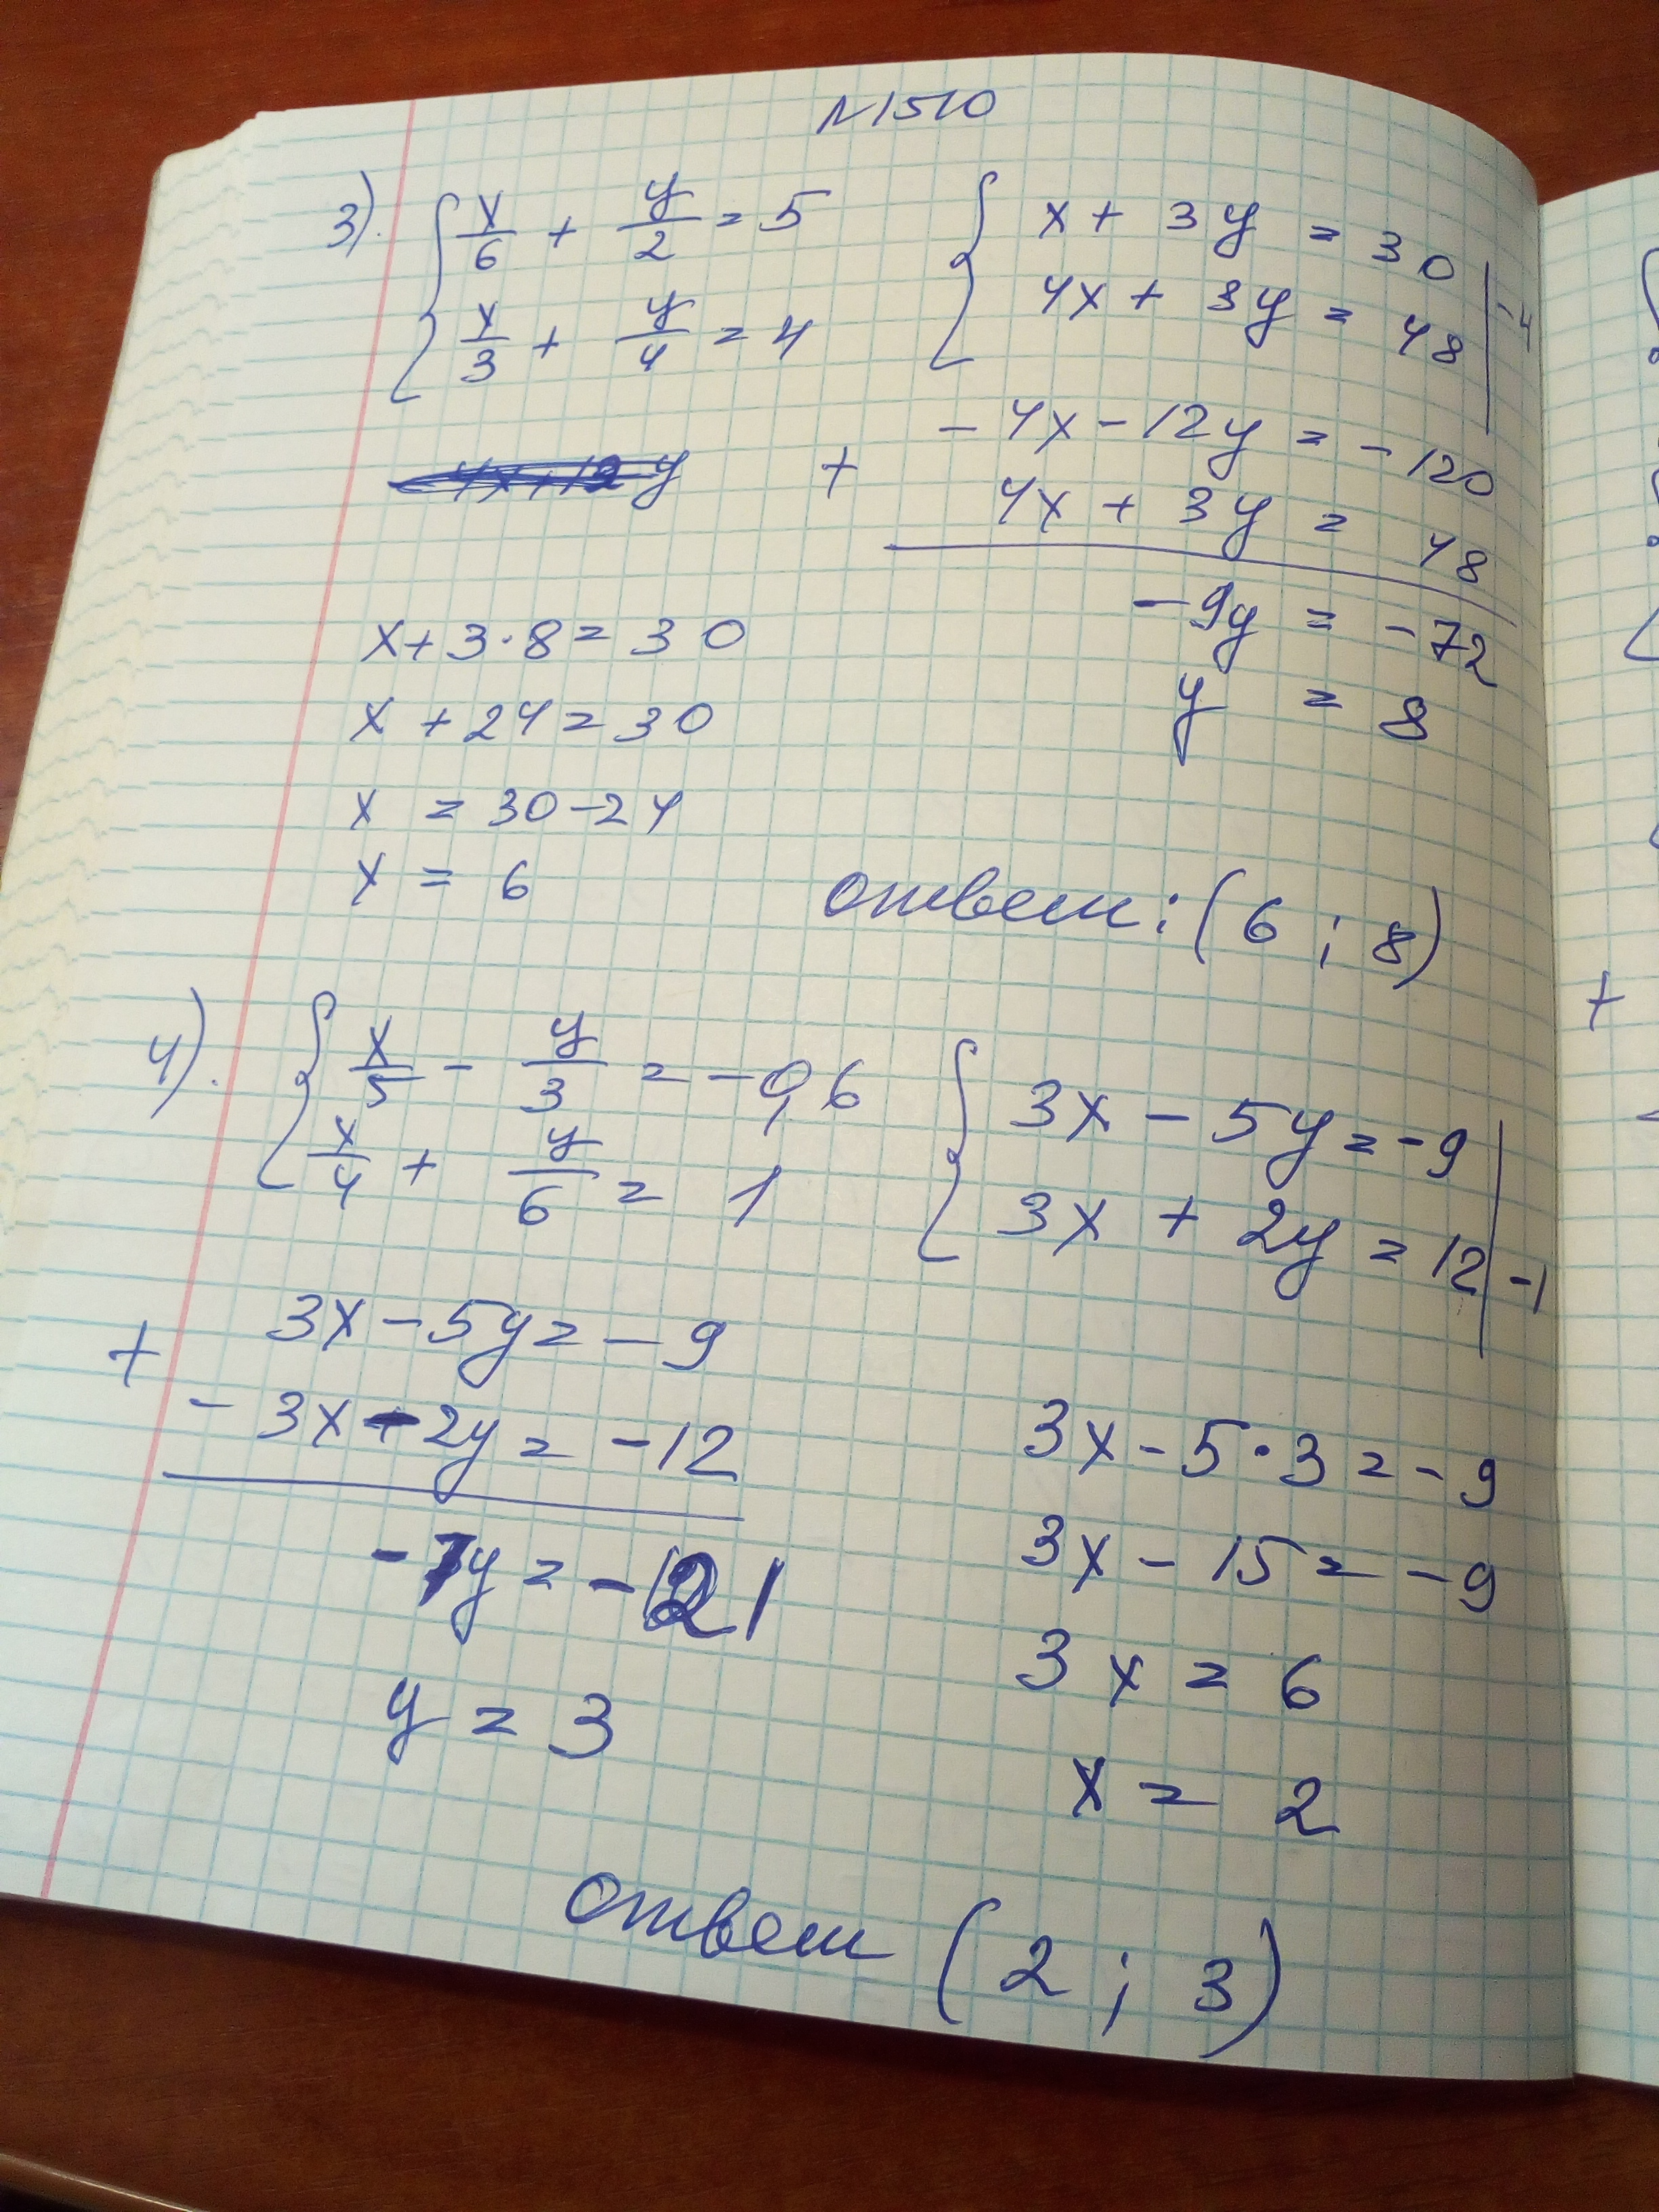 N1510
3). { x/6 + y/2 = 5 { x + 3y = 30 | -4
x/3 + y/4 = 4 4x + 3y = 48
+ -4x - 12y = -120
4x + 3y = 48
-9y = -72
y = 8
x + 3·8 = 30
x + 24 = 30
x = 30 - 24
x = 6
ответ: (6 ; 8)
4). { x/5 - y/3 = -0,6 { 3x - 5y = -9
x/4 + y/6 = 1 3x + 2y = 12 | -1
+ 3x - 5y = -9
-3x - 2y = -12
-7y = -21
y = 3
3x - 5·3 = -9
3x - 15 = -9
3x = 6
x = 2
ответ (2 ; 3)